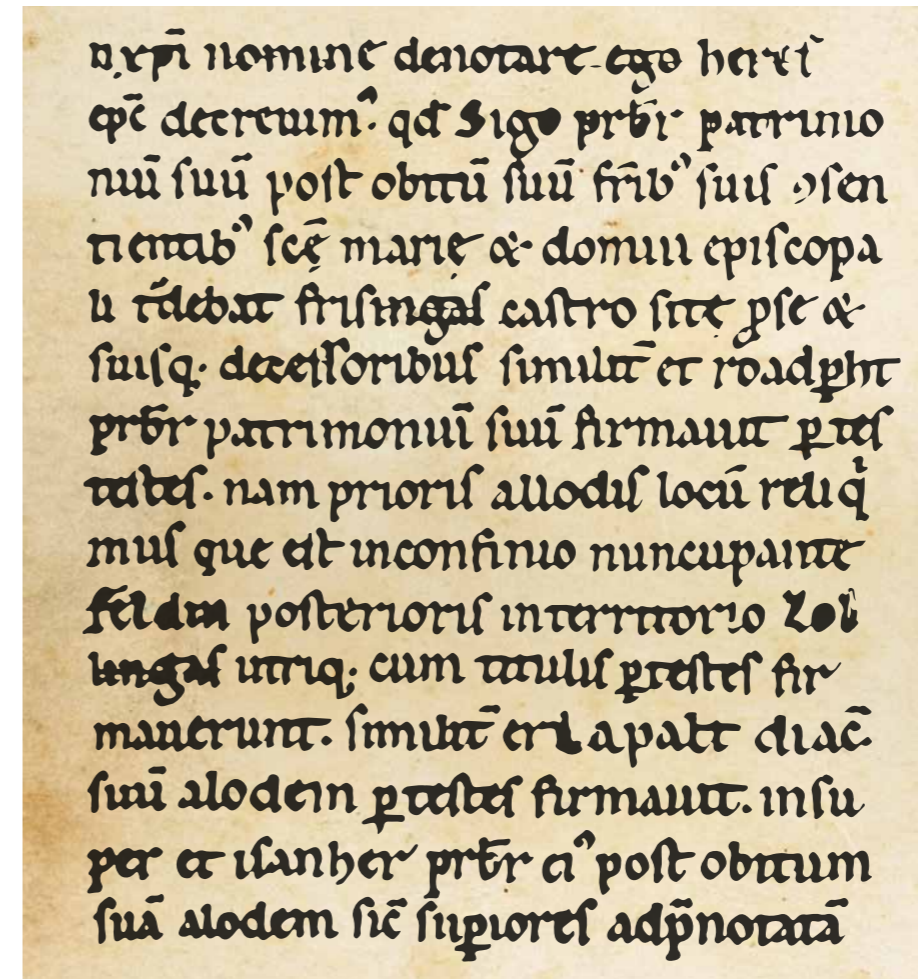 n xp̄i nomine denotare ego herxi
ep̄c decreuim᾽. qđ Sigo prb̄r patrimo
niū suū post obitū suū fr̄ib᾽ suis ꝯsen
tientib᾽ scę̄ marię & domui episcopa
li t̄debat frisingas castro sitę ꝓse &
suisq; decessoribus similit̄ et roadꝑht
prb̄r patrimoniū suū firmauit ꝑ tes
testes. nam prioris allodis locū reliq
mus que est inconfinio nuncupante
feldin posterioris interritorio Zol
lingas utriq; cum titulis ꝑtestes fir
manerunt. similit̄ et Lapalt diac̄.
suū alodem ꝑ testes firmauit. insu
per et isanher prb̄r ei᾽ post obitum
suā alodem sic̄ suꝑiores adp̄notatā